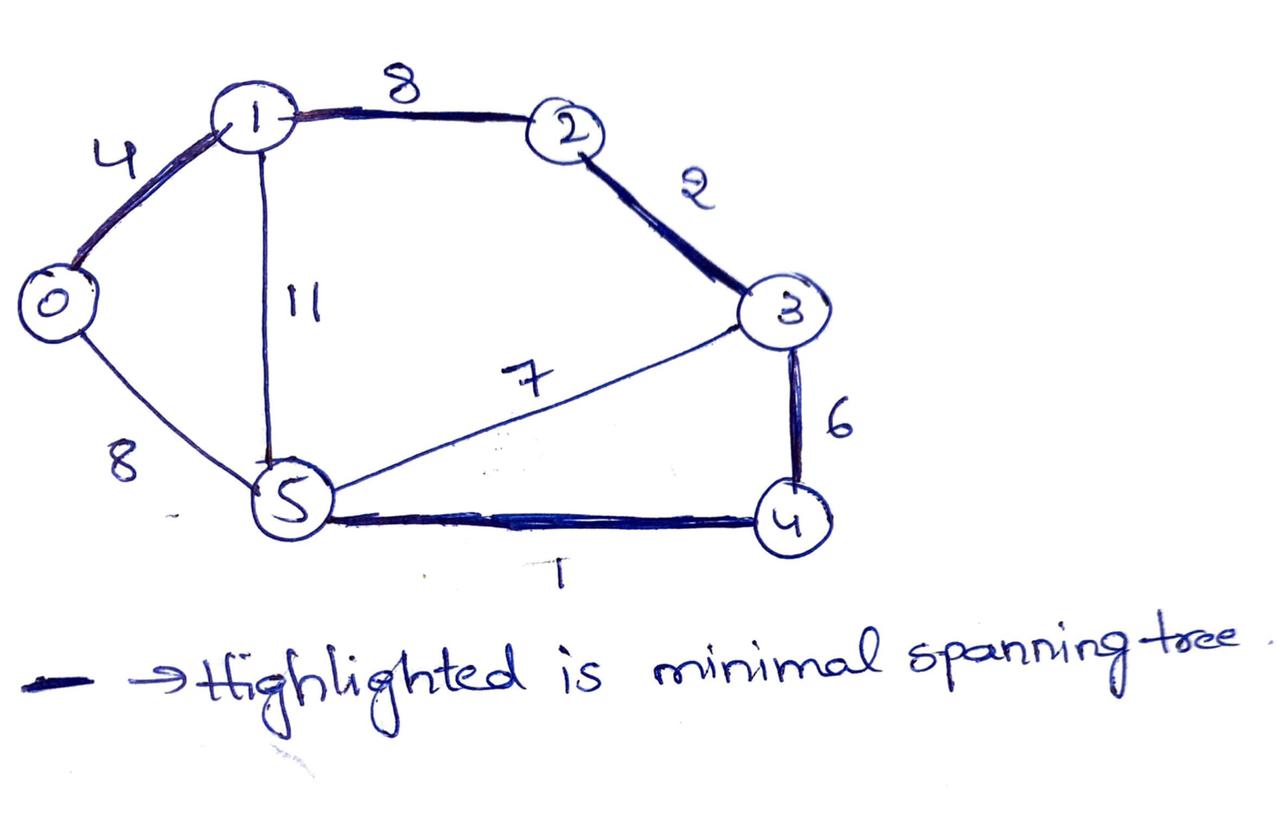 8
1
2
4
2
0
11
3
7
6
8
5
4
1
→ Highlighted is minimal spanning tree.